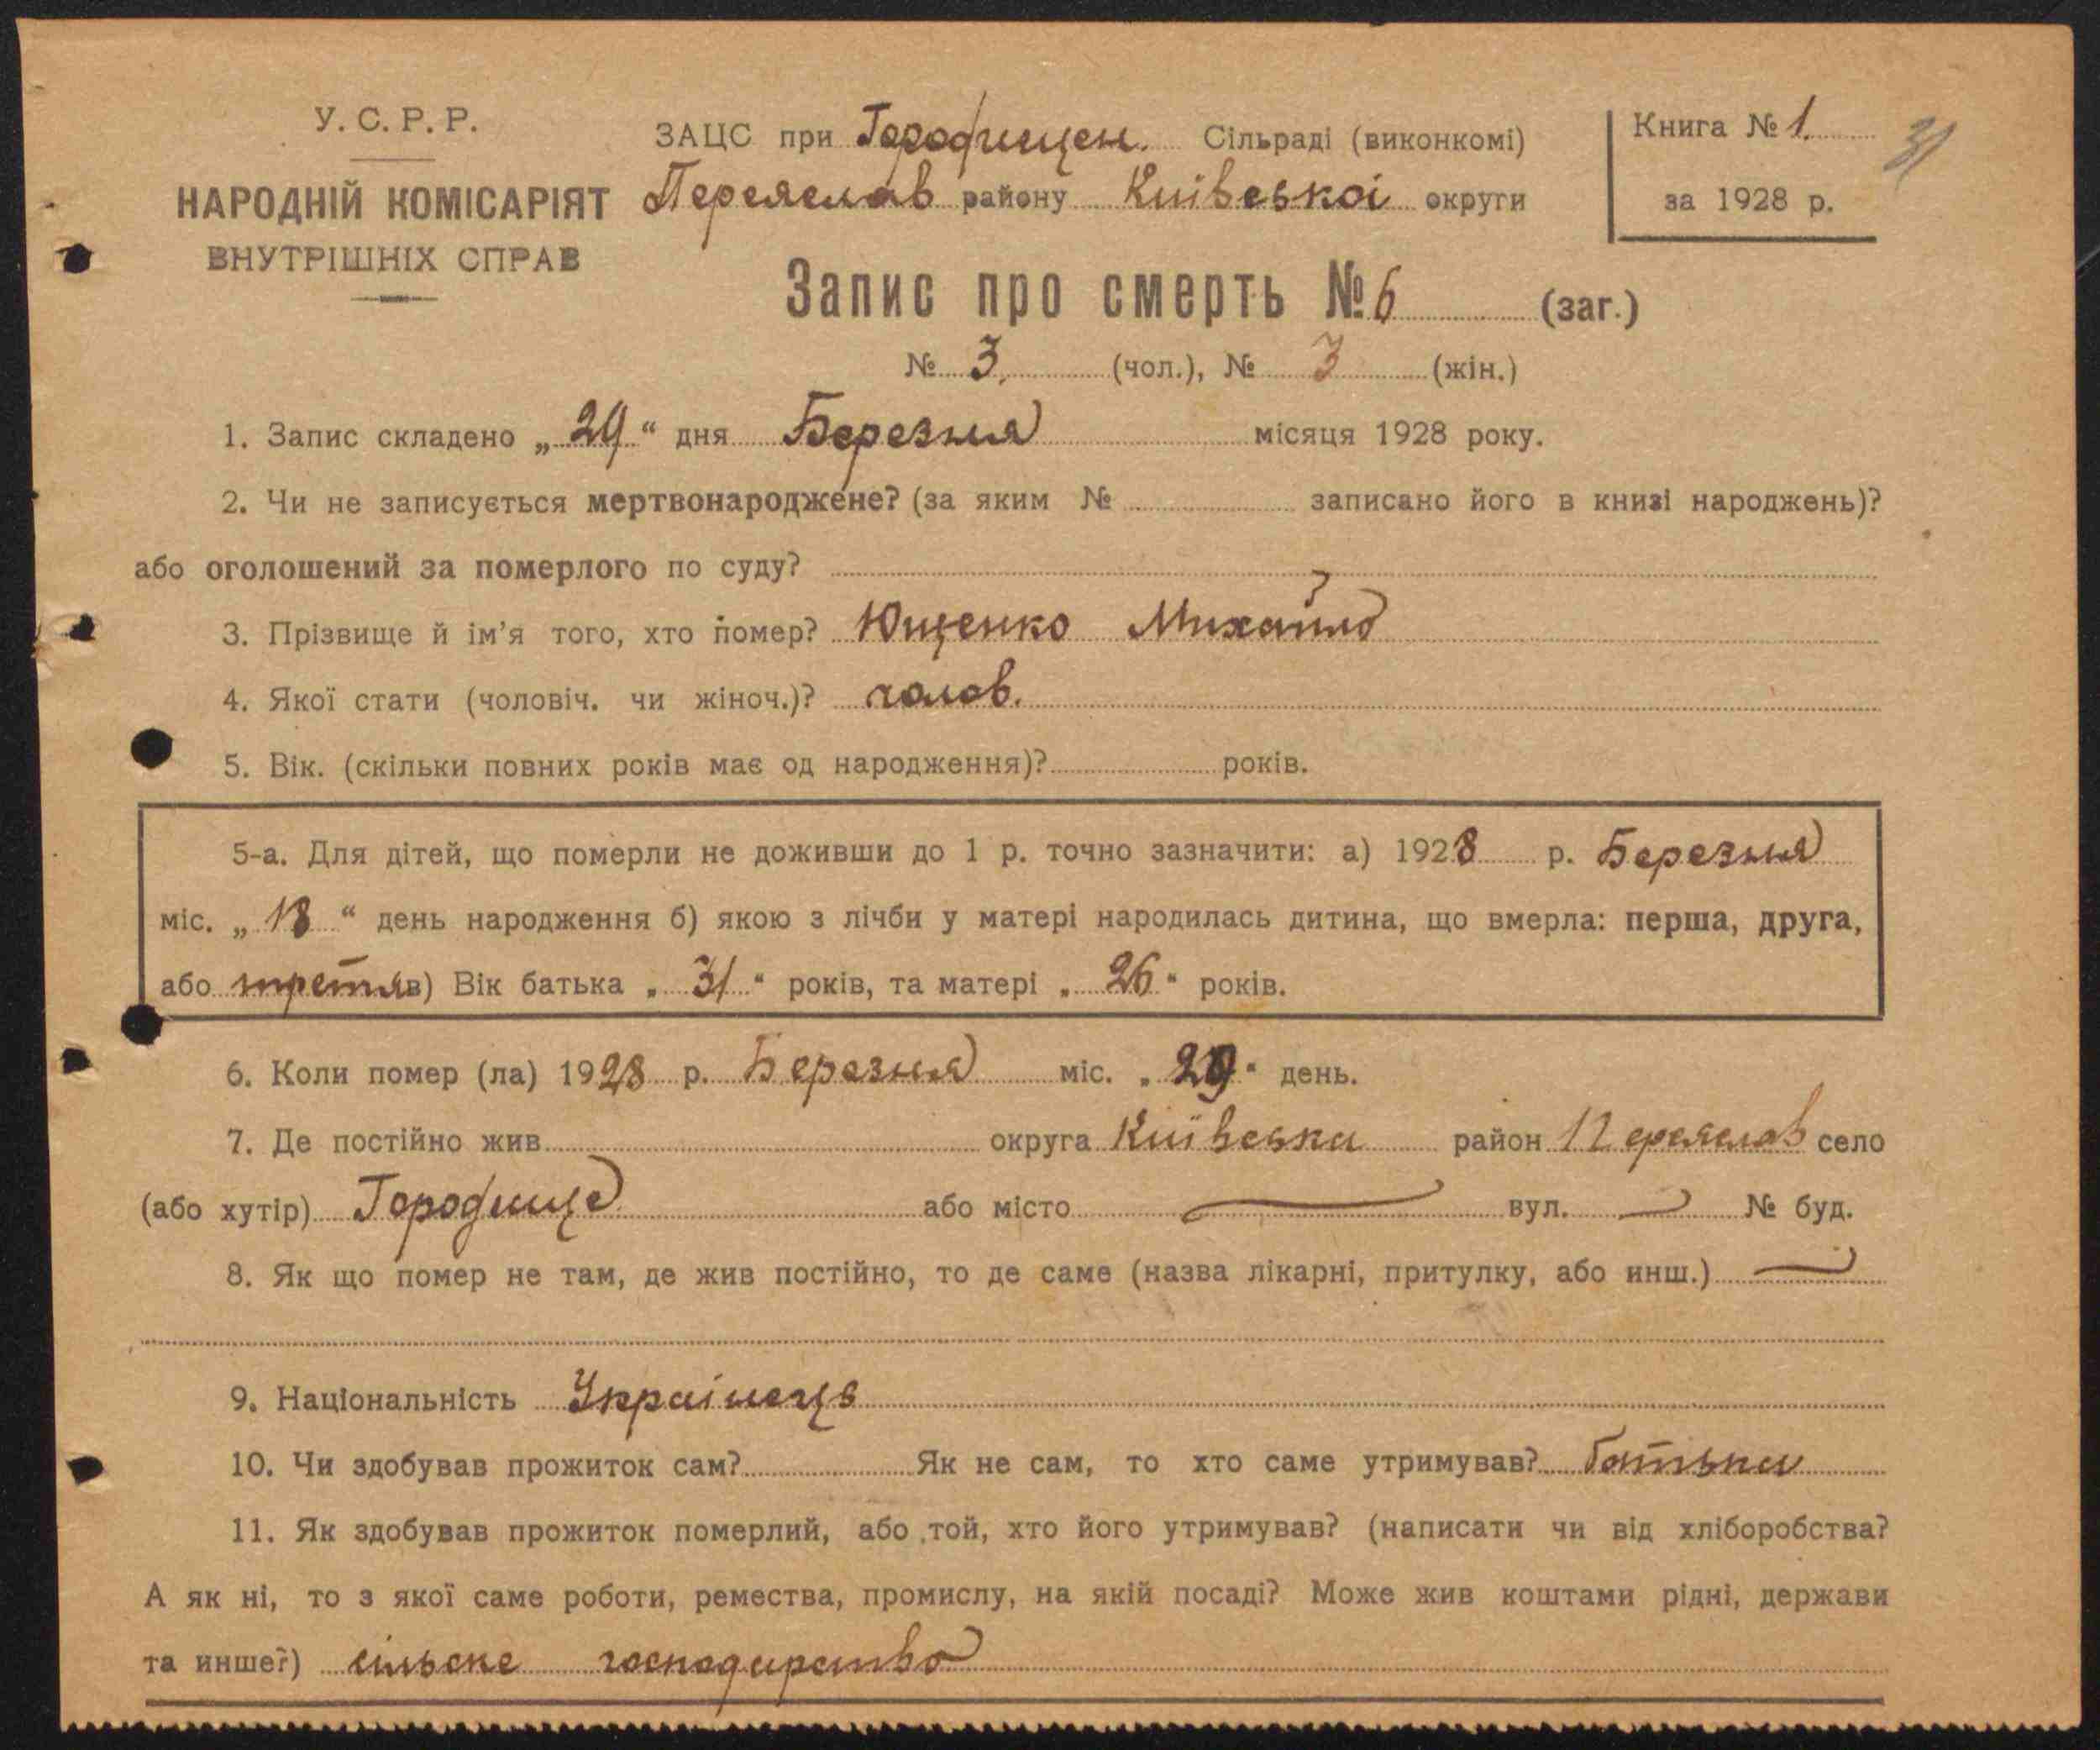 У. С. Р. Р.
НАРОДНІЙ КОМІСАРІЯТ
ВНУТРІШНІХ СПРАВ
ЗАЦС при Городищен. Сільраді (виконкомі)
Переяслав району Київської округи
Книга № 1
за 1928 р.
31
Запис про смерть № 6 (заг.)
№ 3. (чол.), № 3 (жін.)
1. Запис складено „29“ дня Березня місяця 1928 року.
2. Чи не записується мертвонароджене? (за яким № записано його в книзі народжень)?
або оголошений за померлого по суду?
3. Прізвище й ім’я того, хто помер? Ющенко Михайло
4. Якої стати (чоловіч. чи жіноч.)? чолов.
5. Вік. (скільки повних років має од народження)? років.
5-а. Для дітей, що померли не доживши до 1 р. точно зазначити: а) 1928 р. Березня
міс. „18“ день народження б) якою з лічби у матері народилась дитина, що вмерла: перша, друга,
або третя в) Вік батька „31“ років, та матері „26“ років.
6. Коли помер (ла) 1928 р. Березня міс. „29“ день.
7. Де постійно жив округа Київська район Переяслав село
(або хутір) Городище або місто — вул. — № буд.
8. Як що помер не там, де жив постійно, то де саме (назва лікарні, притулку, або инш.) —
9. Національність Українець
10. Чи здобував прожиток сам? Як не сам, то хто саме утримував? батьки
11. Як здобував прожиток померлий, або той, хто його утримував? (написати чи від хліборобства?
А як ні, то з якої саме роботи, ремества, промислу, на якій посаді? Може жив коштами рідні, держави
та инше?) сільське господарство